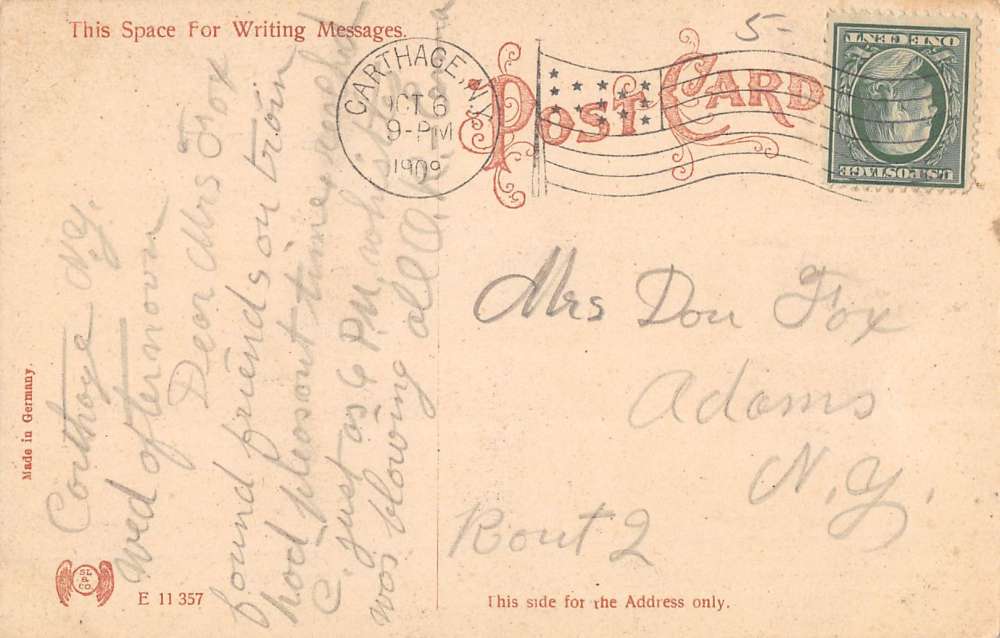 This Space For Writing Messages.
POST CARD
5-
CARTHAGE, N.Y.
OCT 6
9-PM
1909
U.S. POSTAGE
ONE CENT
Carthage N.Y.
Wed afternoon
Dear Mrs Fox
found friends on train
had pleasant time reached
C. just as 6 P.M. whistle
was blowing all O.K.
Mrs Don Fox
Adams
N.Y.
Rout 2
Made in Germany.
SL & CO.
E 11 357
This side for the Address only.